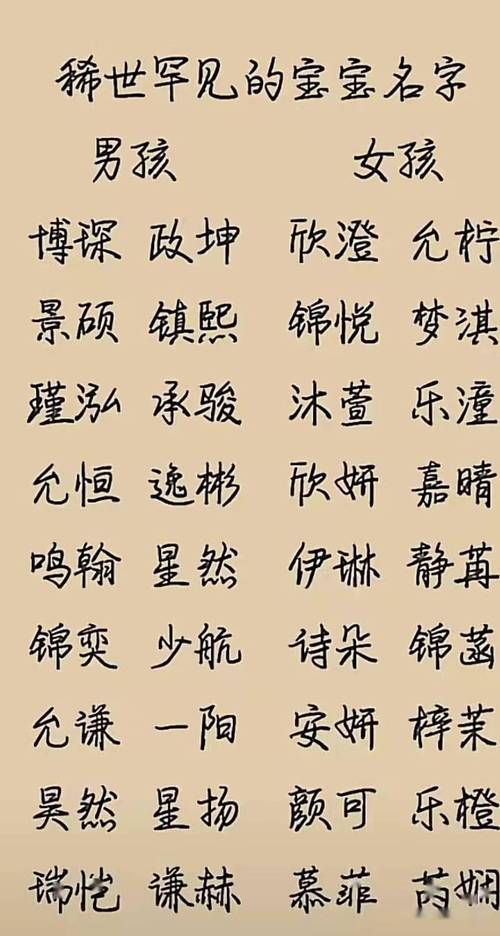 稀世罕见的宝宝名字
男孩 女孩
博琛 政坤 欣澄 允柠
景硕 镇熙 锦悦 梦淇
瑾泓 承骏 沐萱 乐潼
允恒 逸彬 欣妍 嘉晴
鸣翰 星然 伊琳 静苒
锦奕 少航 诗朵 锦菡
允谦 一阳 安妍 梓茉
昊然 星扬 颜可 乐橙
瑞恺 谦赫 慕菲 芮娴